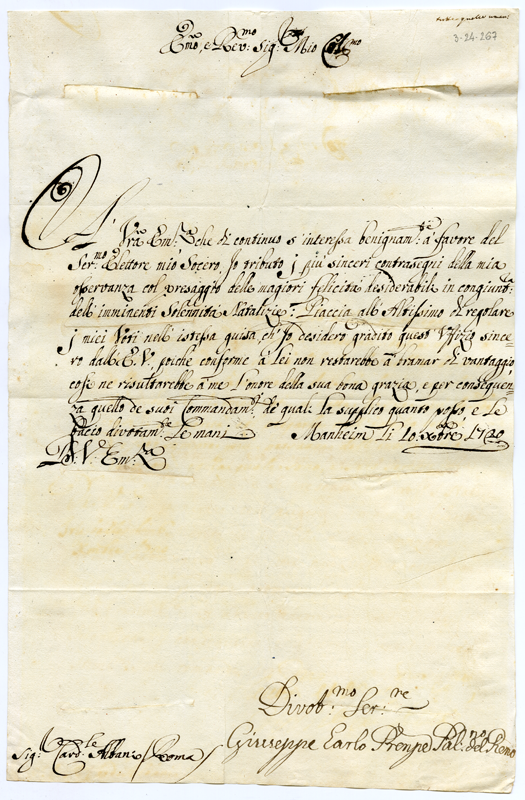 3-24-267
Emo, e Rev:mo Sig.r Mio Colmo
A' Vrã Em:za che di continuo s'interessa benignam:te a favore del
Ser:mo Elettore mio Socero, Io tributo j più sinceri contrasegni della mia
osservanza col presaggio delle magiori felicità desiderabili in congiunt:a
dell'imminenti Solennità Natalizie: Piaccia all'Altissimo di regolare
j miei Voti nell'istessa guisa, ch'Io desidero gradito quest'Uffizio since-
ro dall'E.V., poiche conforme a Lei non restarebbe a bramar di vantaggio
così ne risultarebbe a me L'onore della sua bona grazia, e per conseguen-
za quello de suoi Commandam:ti de quali La supplico quanto posso, e Le
bacio divotam:te Le mani. Manheim Li 10. xbre. 1720
D. V. Em:za
Divot:mo Ser:re
Giuseppe Carlo Prenpe Pal:no del Reno
Sig:r Card:le Albani / Roma /